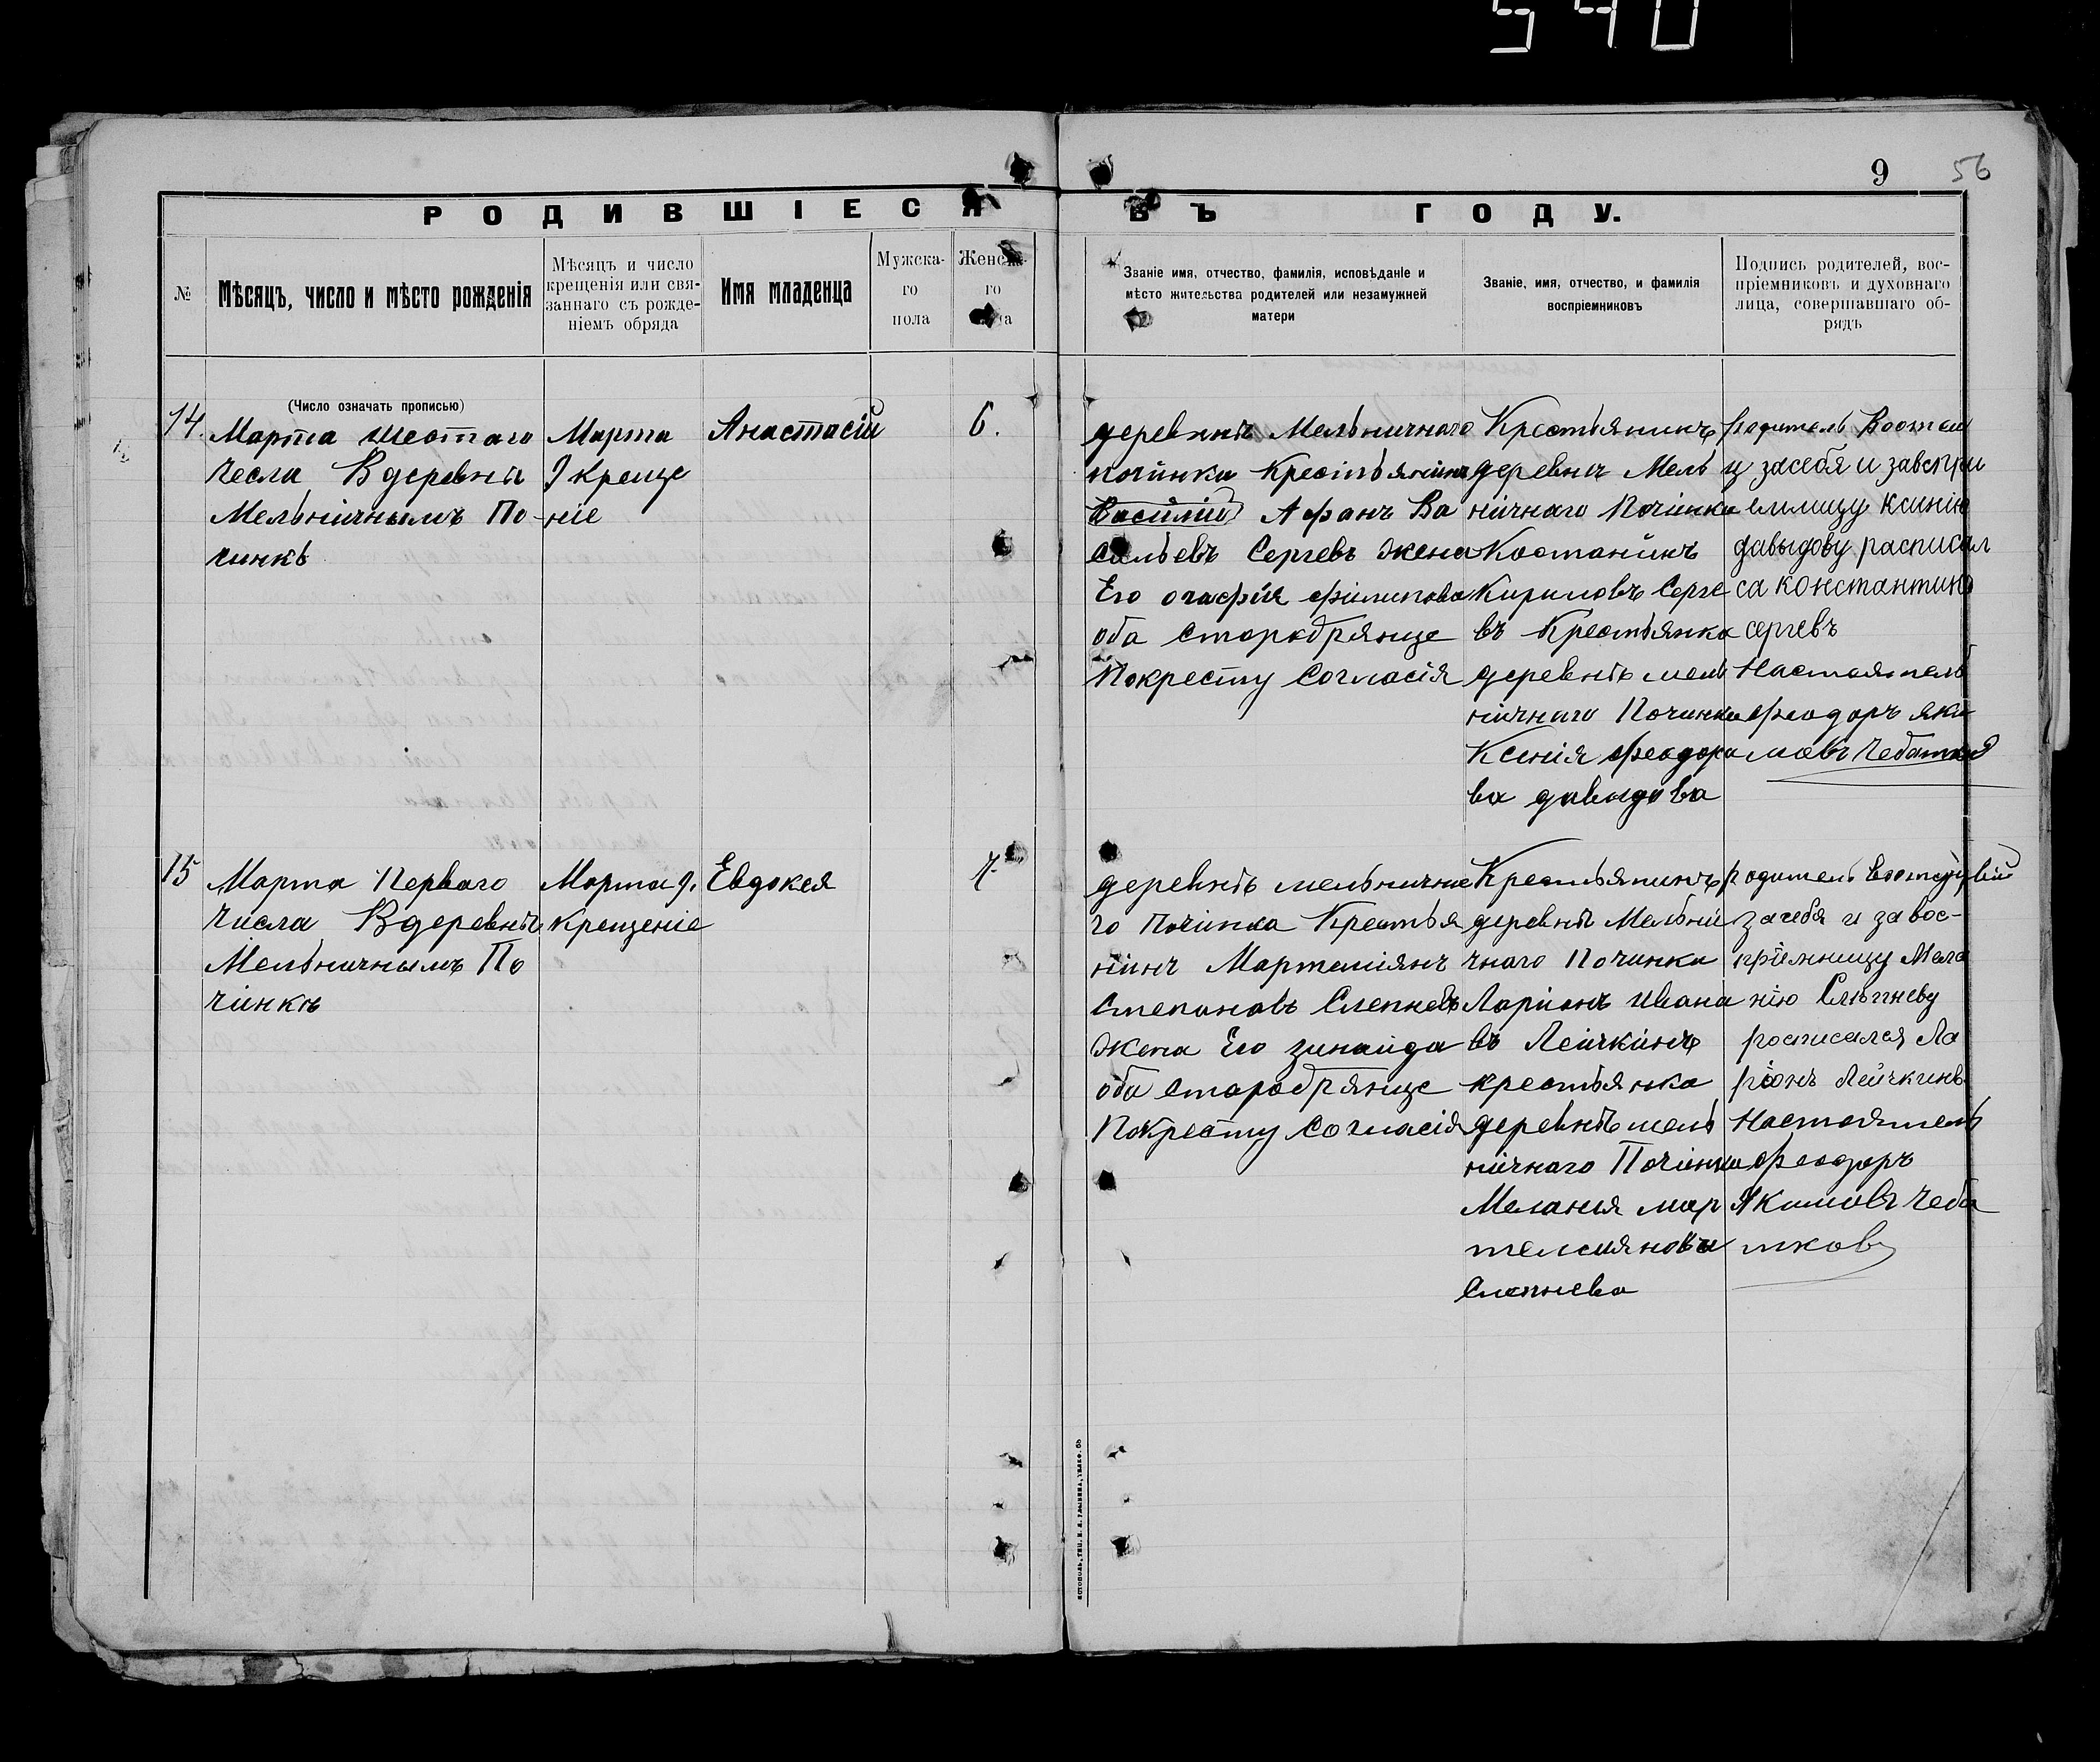 540
9 56
РОДИВШІЕСЯ ВЪ ГОДУ.
№
Мѣсяцъ, число и мѣсто рожденія
Мѣсяцъ и число
крещенія или свя-
заннаго съ рожде-
ніемъ обряда
Имя младенца
Мужска-
го
пола
Женска-
го
Званіе имя, отчество, фамилія, исповѣданіе и
мѣсто жительства родителей или незамужней
матери
Званіе, имя, отчество, и фамилія
воспріемниковъ
Подпись родителей, вос-
пріемниковъ и духовнаго
лица, совершавшаго об-
рядъ
(Число означать прописью)
14.
Марта шестаго
чесла Вдеревнѣ
Мельничнымъ По-
чинкѣ
Марта
9 креще
ніе
Анастасіи
6.
деревнѣ Мельничнаго
починка Крестьянинъ
Василій Афанъ Ва
сильевъ Сергевъ жена
Его огафія филипова
оба старобрянце
Покресту Согласія
Крестьянинъ
деревнѣ Мель
ничнаго Починка
Костанинъ
Кириловъ Серге
въ Крестьянка
деревнѣ мель
ничнаго Починка
Ксенія феодоро
ва давыдова
родитель
и засебя и завспри
емлицу Ксинію
давыдову расписал
са константинъ
сергевъ
Настаятель
феодоръ яки
мовъ Чебатков
15
Марта Перваго
числа Вдеревнѣ
Мельничнымъ По
чинкѣ
Марта 9.
Крещеніе
Евдокея
7.
деревнѣ мельнична
го Починка Крестья
нинъ Мартемiянъ
Степановъ Слепневъ
жена Его зинаида
оба старобрянце
Покресту Согласія
Крестьянинъ
деревнѣ Мельни
чнаго Починка
Ларионъ Ивана
въ Лейчкинъ
крестьянка
деревнѣ мель
ничнаго Починка
Мелания мар
темиянова
Слепнева
родитель
засебя и за вос-
пріемницу Мела
нію Слѣпневу
росписался Ла
ріонъ Лейчкинъ
Настаятель
феодоръ
Якимовъ Чеба
тков